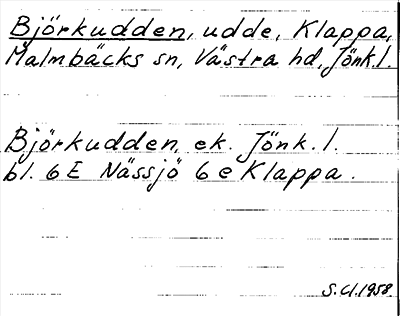 Björkudden, udde, Klappa,
Malmbäcks sn, Västra hd, Jönk.l.
Björkudden, ek. Jönk.l.
bl. 6E Nässjö 6e Klappa.
S.Cl.1958